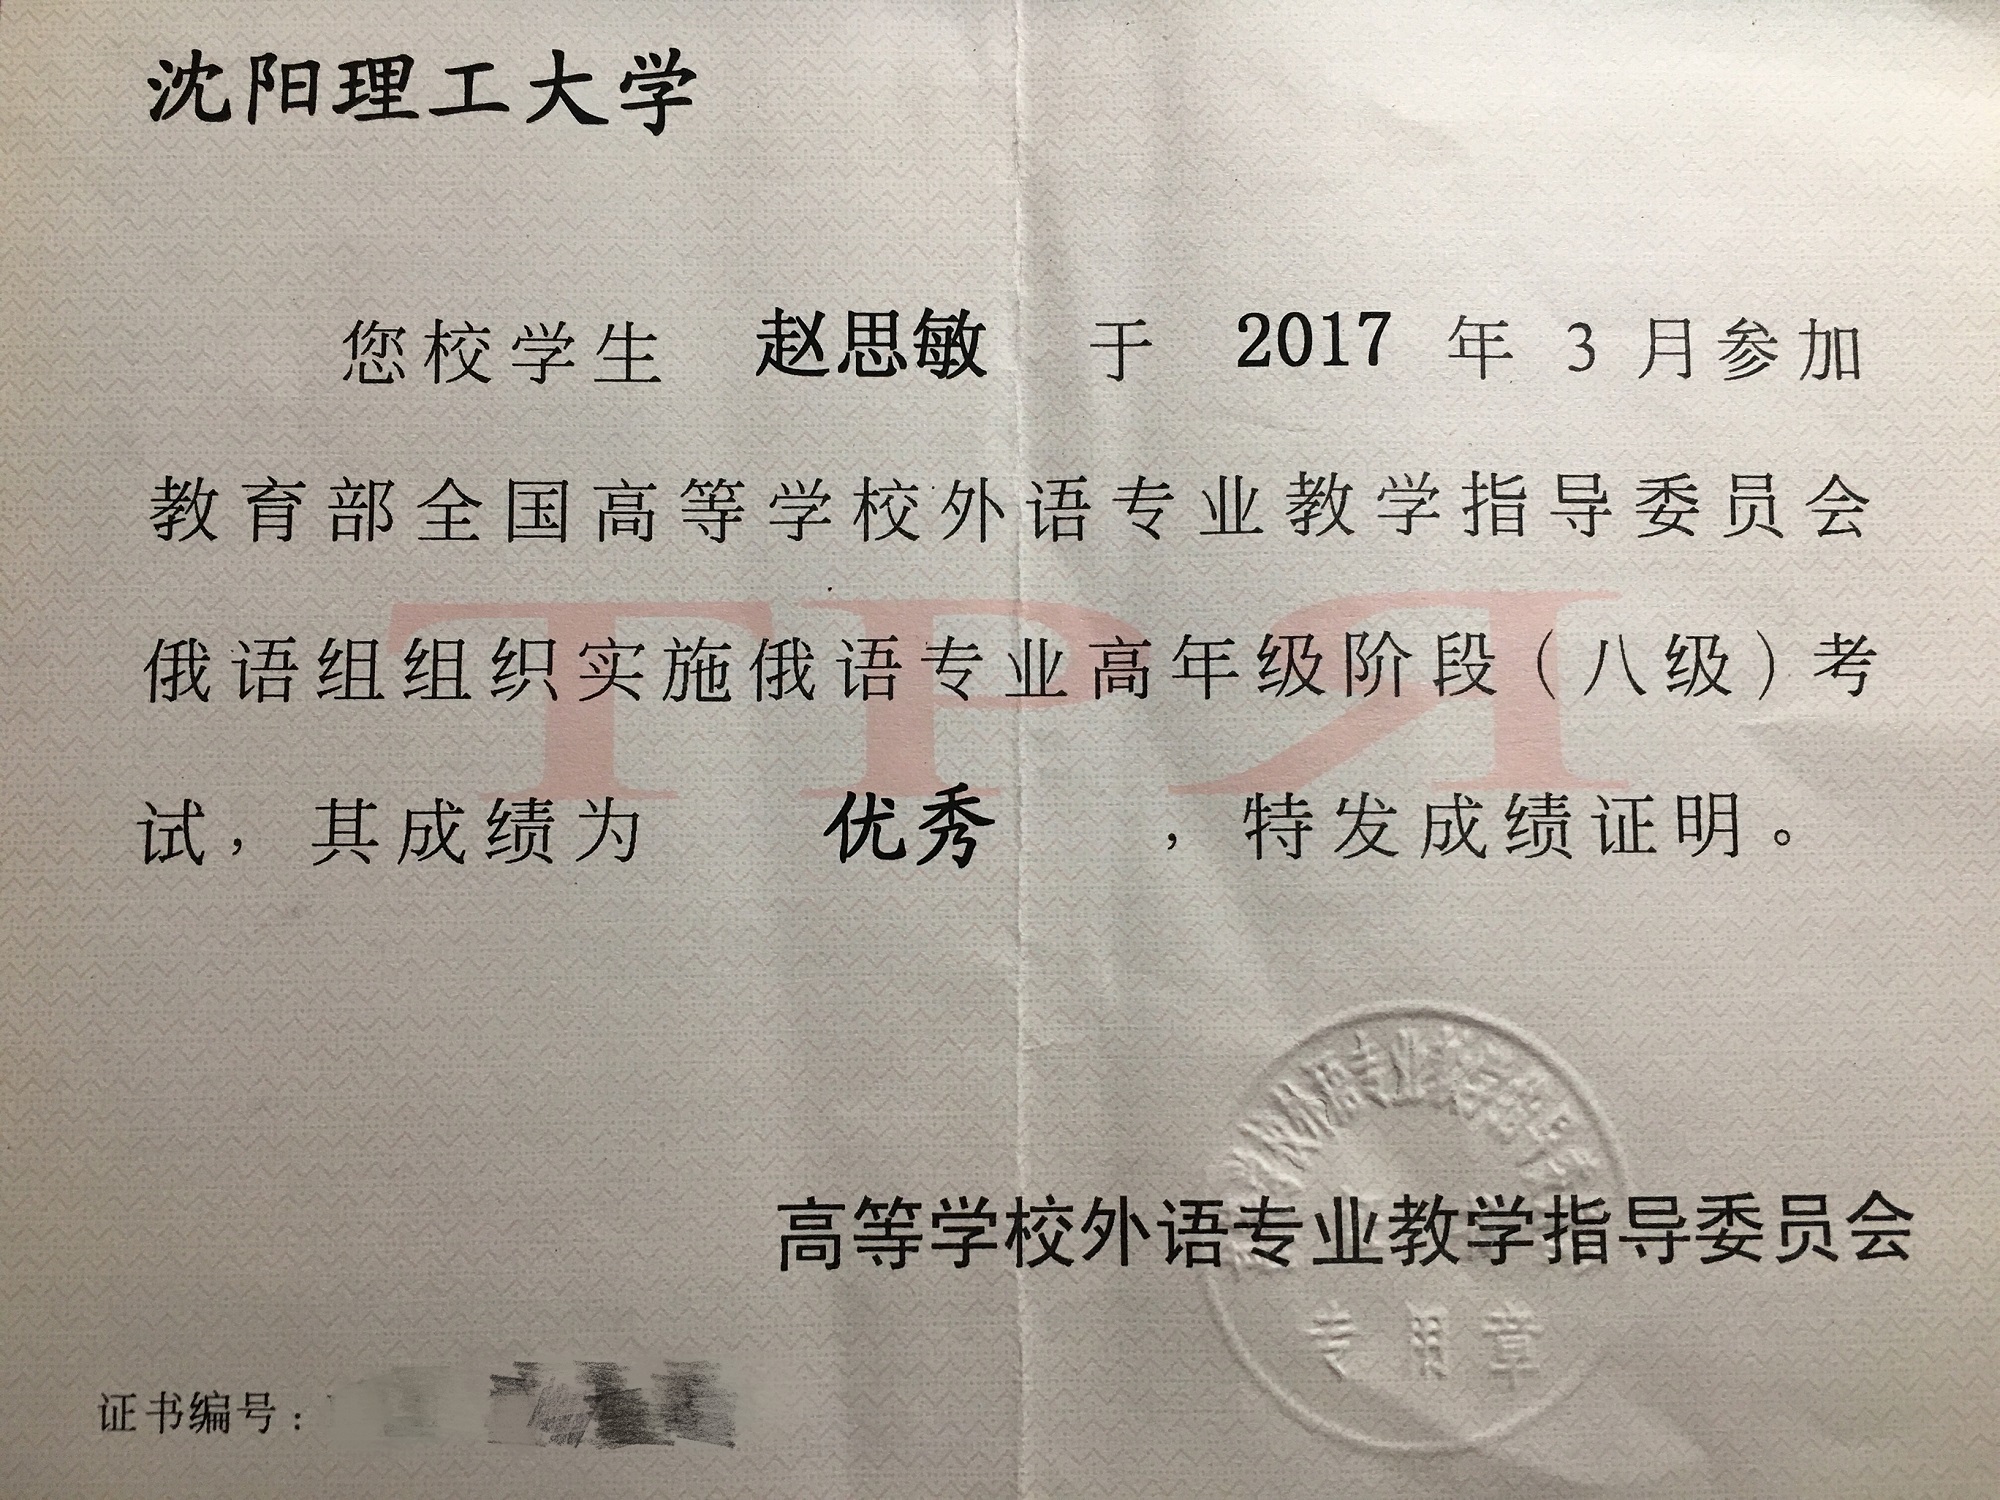 沈阳理工大学
您校学生 赵思敏 于 2017 年 3 月参加
教育部全国高等学校外语专业教学指导委员会
俄语组组织实施俄语专业高年级阶段（八级）考
试，其成绩为 优秀 ，特发成绩证明。
ТРЯ
学校外语专业教学指导委
高等学校外语专业教学指导委员会
专用章
证书编号：